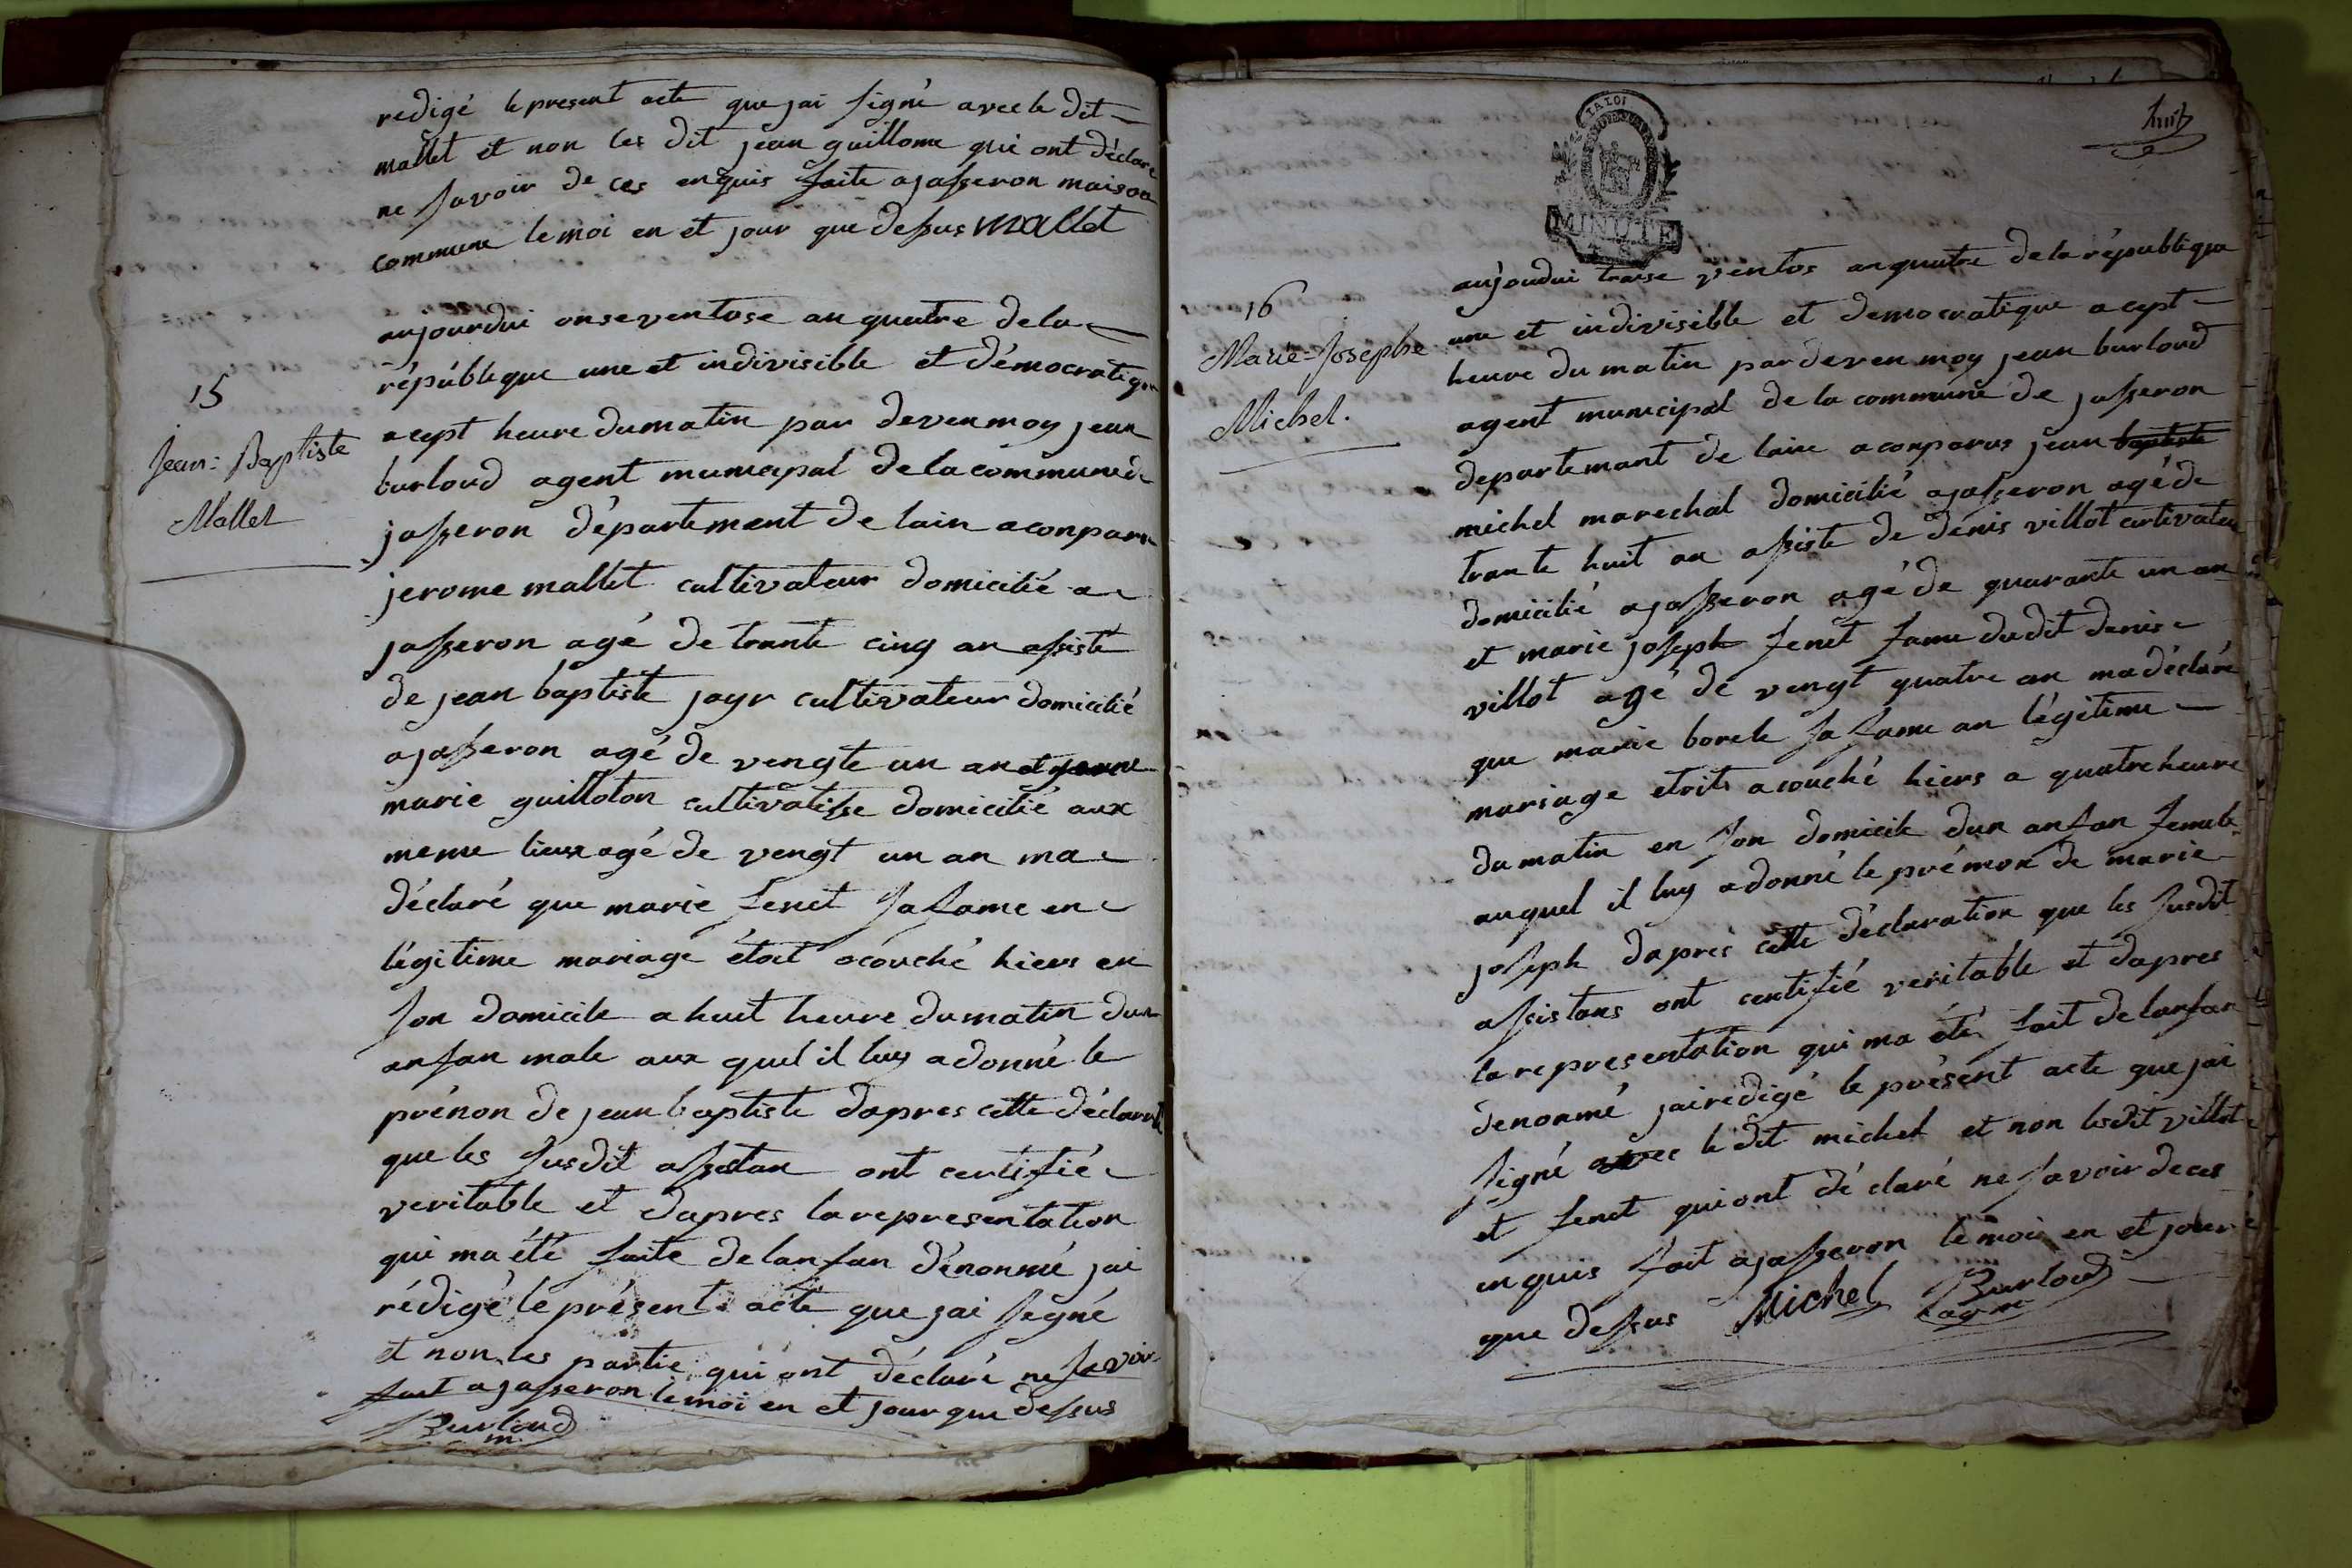 redigé le present acte que jai signé avec le dit
mallet et non les dit jean guillome qui ont déclare
ne savoir de ces enquis faite a jasseron maison
commune le moi en et jour que dessus mallet
15
Jean-Baptiste
Mallet
aujourdui onse ventose an quatre de la
républeque une et indivisible et démocratique
a cept heure du matin par deven moy jean
burloud agent municipal de la commune de
jasseron département de lain a conparu
jerome mallet cultivateur domicilié a
jasseron agé de trante cinq an assisté
de jean baptiste jayr cultivateur domicilié
a jasseron agé de vengte un an et
marie guilloton cultivatisse domicilié aux
meme lieux agé de vengt un an ma
déclaré que marie fenet sa fame en
légitime mariage étoit acouché hiers en
son domicile a huit heure du matin dun
anfan male aux quel il luy a donné le
prénon de jean baptiste dapres cette déclarat
que les susdit assistan ont certifié
veritable et dapres la representation
qui ma été faite de lanfan dénonmé jai
rédigé le présent acte que jai segné
et non les partie qui ont déclaré ne savoir
fait a jasseron le moi en et jour que dessus
Burloud
m.
LA LOI
MINUTE
huit
16
Marie-Josephe
Michel.
aujoudui traise ventos an quatre de la républiqua
une et indivisible et democratique a cept
heure du matin par deven moy jean burloud
agent municipal de la commune de jasseron
departemant de lain a conparus jean baptiste
michel marechal domicilié a jasseron agé de
trante huit an assisté de denis villot curtivateu
domicilié a jasseron agé de quarante un an
et marie joseph fenet fame du dit denis
villot agé de vengt quatre an ma déclaré
que marie borele sa fame an légitime
mariage etoits acouché hiers a quatre heure
du matin en son domicile dun anfan femele
auquel il luy a donné le prémon de marie
joseph dapres cette déclaration que les susdit
assistans ont certifié veritable et dapres
la representation qui ma été fait de lanfan
denonmé jai rédigé le présent acte que jai
signé avec le dit michel et non lesdit villot
et fenet qui ont déclaré ne savoir de ces
enquis fait a jasseron le moi en et jour
que dessus Michel Burloud
agm